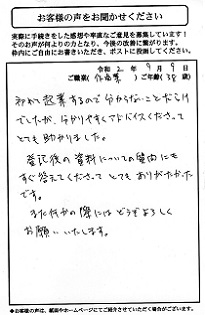 お客様の声をお聞かせください
実際に手続きをした感想や率直なご意見を募集しています！
そのお声が何よりの力となり、今後の改善に繋がります。
枠内にご自由にお書きいただき、ポストに投函してください。
令和 2 年 9 月 9 日
ご職業( 作曲業 ) ご年齢( 38 歳)
初めて起業するので分からないことだらけ
でしたが、分かりやすくアドバイスくださって
とても助かりました。
登記後の資料についての質問にも
すぐ答えてくださって とてもありがたかった
です。
また何かの際にはどうぞよろしく
お願いいたします。
※お客様の声は、紙面やホームページにてご紹介させていただく場合がございます。